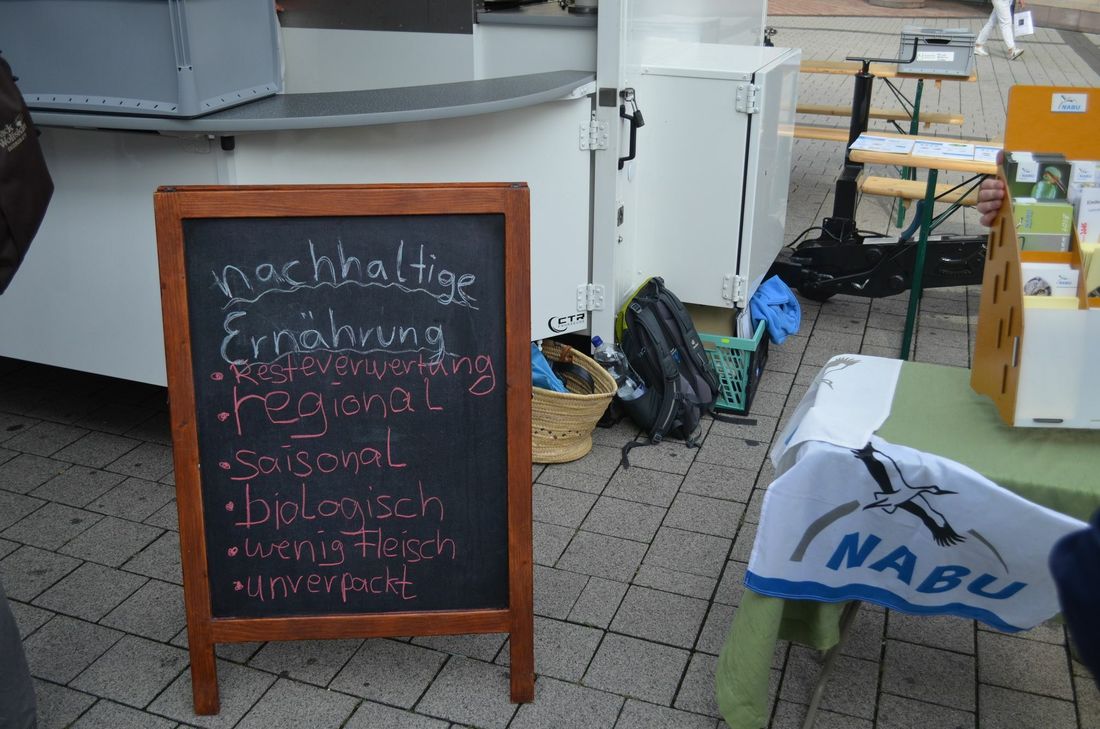 nachhaltige
Ernährung
• Resteverwertung
• regional
• saisonal
• biologisch
• wenig Fleisch
• unverpackt
CTR
NABU
NABU